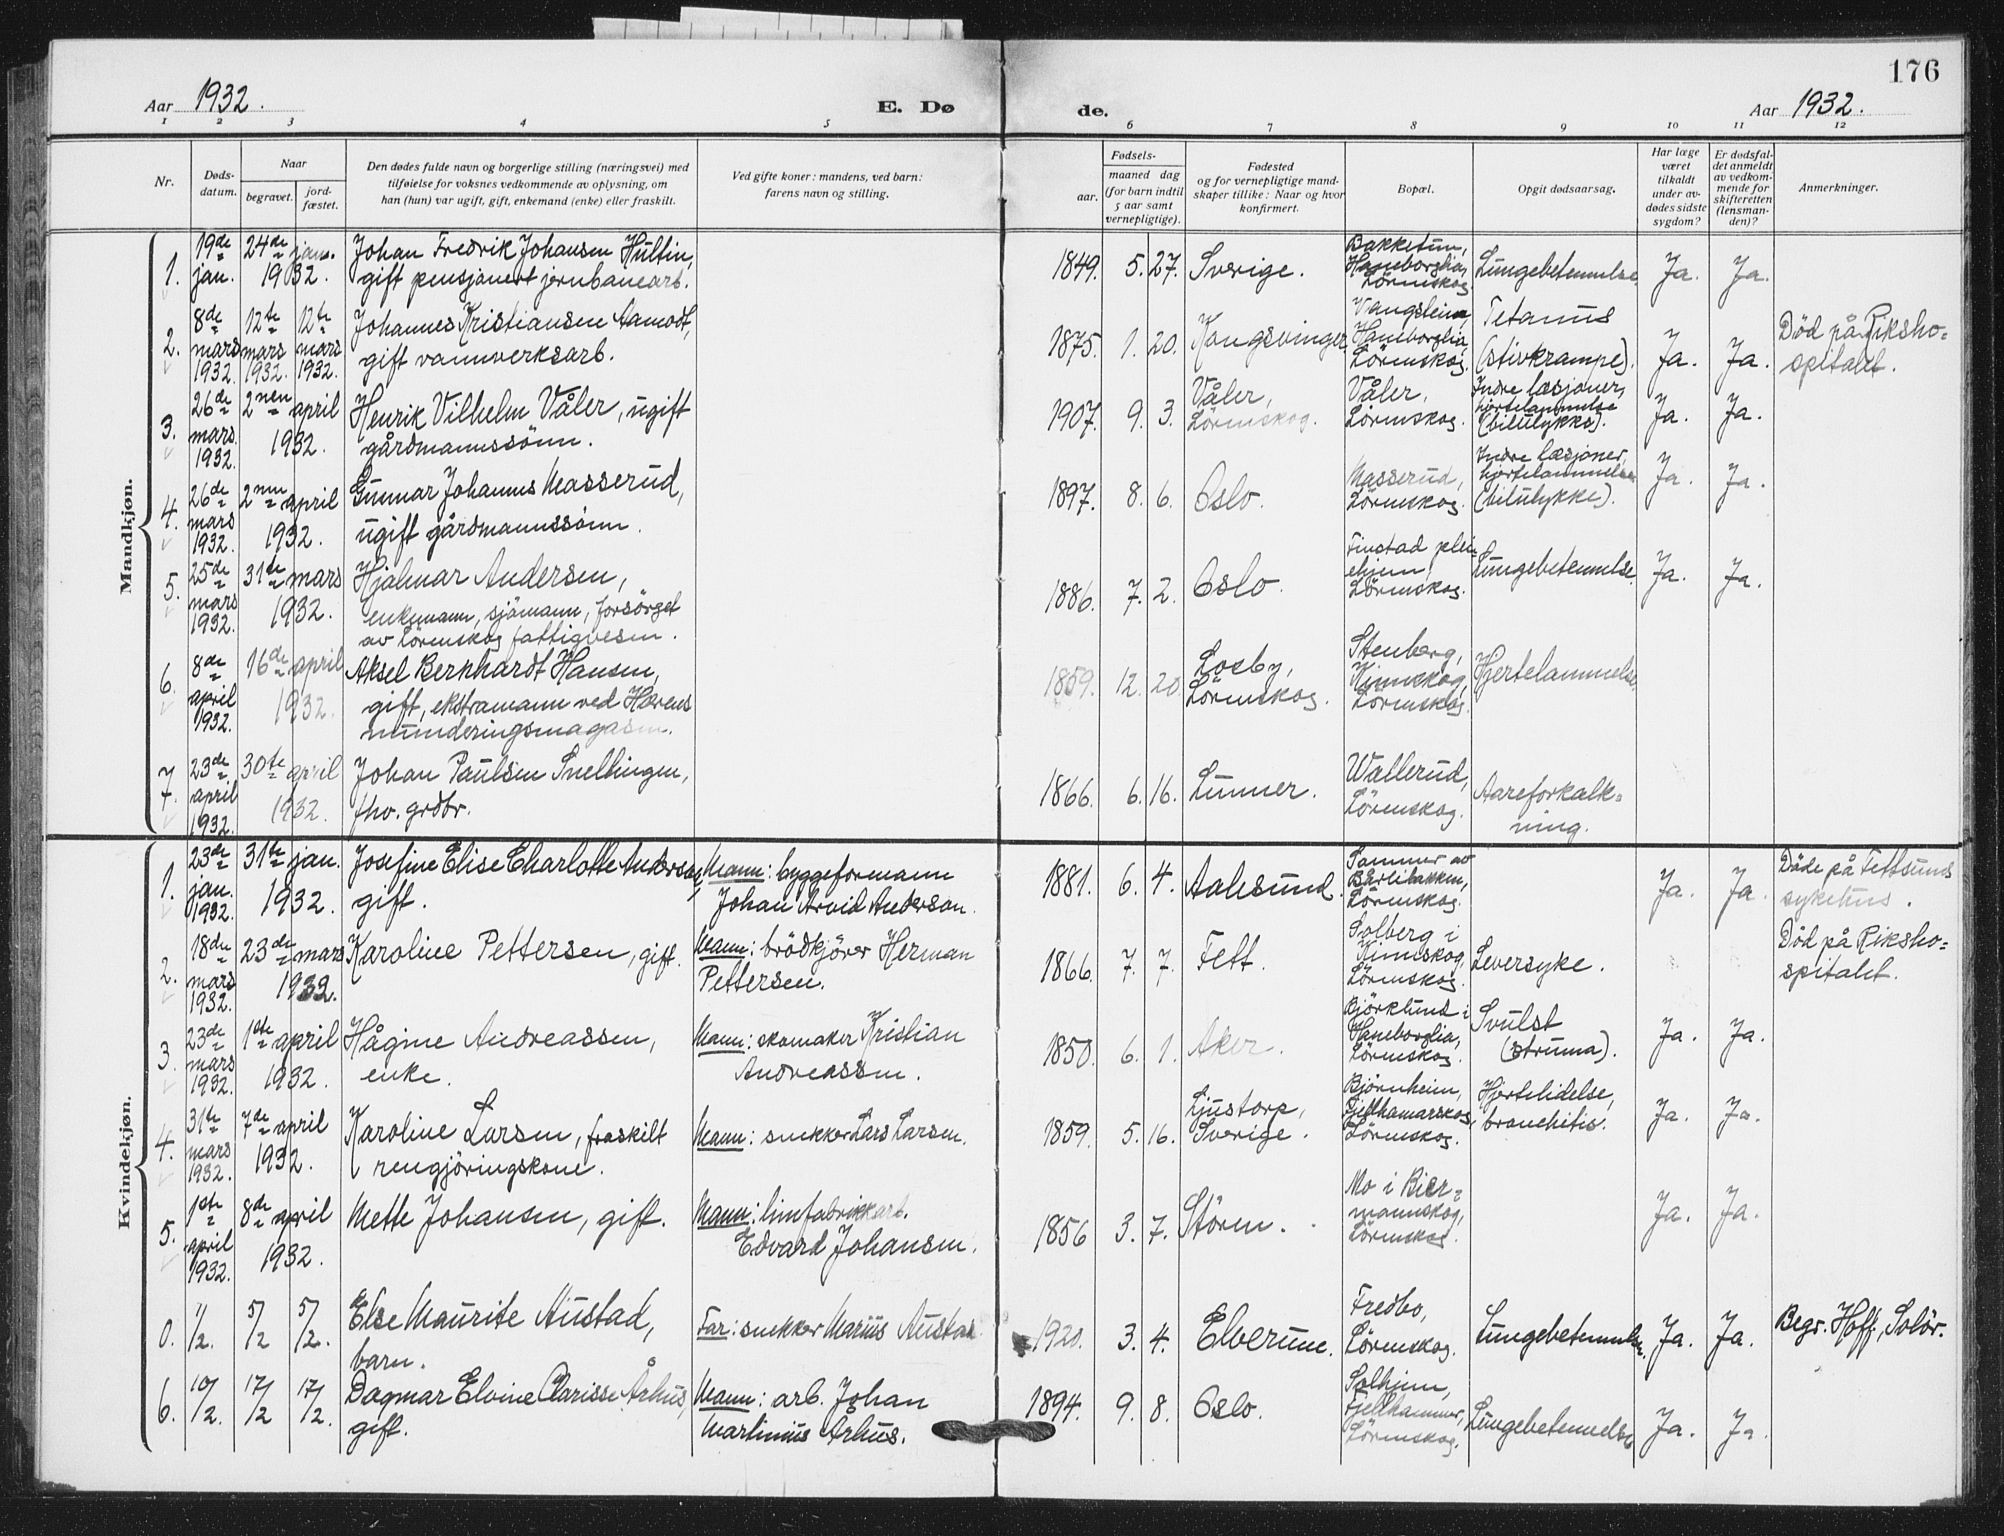 176
Aar 1932.
E. Dø de.
Aar 1932.
1 2 3 4 5 6 7 8 9 10 11 12
Nr.
Døds-
datum.
Naar
begravet.
jord-
fæstet.
Den dødes fulde navn og borgerlige stilling (næringsvei) med
tilføielse for voksnes vedkommende av oplysning, om
han (hun) var ugift, gift, enkemand (enke) eller fraskilt.
Ved gifte koner: mandens, ved barn:
farens navn og stilling.
Fødsels-
aar.
maaned dag
(for barn indtil
5 aar samt
vernepligtige).
Fødested
og for vernepligtige mand-
skaper tillike: Naar og hvor
konfirmert.
Bopæl.
Opgit dødsaarsag.
Har læge
været
tilkaldt
under av-
dødes sidste
sygdom?
Er dødsfal-
det anmeldt
av vedkom-
mende for
skifteretten
(lensman-
den)?
Anmerkninger.
Mandkjøn.
1.
19de
jan.
24de jan.
1932.
Johan Fredrik Johansen Hultin,
gift pensjonert jernbanearb.
1849. 5. 27. Sverige.
Bakketun,
Haneborglia,
Lörenskog
Lungebetennelse
Ja. Ja.
2.
8de
mars
1932.
12te
mars
1932.
12te
mars
1932.
Johannes Kristiansen Aamodt,
gift vannverksarb.
1875. 1. 20. Kongsvinger
Vangsheim,
Haneborglia,
Lörenskog.
Tetanus
(stivkrampe).
Ja. Ja.
Död på Riksho=
spitalet.
3.
26de
mars.
1932.
2nen april
1932.
Henrik Vilhelm Våler, ugift
gårdmannssönn.
1907. 9. 3.
Våler,
Lörenskog.
Våler,
Lörenskog.
Indre læsjoner,
hjertelammelse
(bilulykke).
Ja. Ja.
4.
26de
mars
1932.
2nen april
1932.
Gunnar Johannes Masserud,
ugift gårdmannssönn.
1897. 8. 6. Oslo.
Masserud,
Lörenskog.
Indre læsjoner,
hjertelammelse
(bilulykke).
Ja. Ja.
5.
25de
mars
1932.
31te mars
1932.
Hjalmar Andersen,
enkemann, sjömann, forsörget
av Lörenskog fattigvesen.
1886. 7. 2. Oslo.
Finstad plei=
ehjem,
Lörenskog.
Lungebetennelse.
Ja. Ja.
6.
8de
april
1932.
16de april
1932.
Aksel Bernhardt Hansen,
gift, ekstramann ved Hærens
munderingsmagasin.
1859. 12. 20.
Losby,
Lörenskog.
Stenberg,
Kinnskog,
Lörenskog.
Hjertelammelse.
7.
23de
april
1932.
30te april
1932.
Johan Paulsen Snellingen,
fhv. grdbr.
1866. 6. 16. Lunner.
Wallerud,
Lörenskog.
Aareforkalk=
ning.
Kvindekjøn.
1.
23de
jan.
1932.
31te jan.
1932.
Josefine Elise Charlotte Anderson,
gift.
Mann: byggeformann
Johan Arvid Anderson.
1881. 6. 4. Aalesund.
Sammer av
Bårlibakken,
Lörenskog.
Ja. Ja.
Döde på Fettsund
sykehus.
2.
18de
mars
1932.
23de mars
1932.
Karoline Pettersen, gift.
Mann: brödkjörer Herman
Pettersen.
1866. 7. 7. Fett.
Solberg i
Kinnskog,
Lörenskog.
Leversyke.
Död på Riksho=
spitalet.
3.
23de
mars
1932.
1ste april
1932.
Hågine Andreassen,
enke.
Mann: skomaker Kristian
Andreassen.
1850. 6. 1. Aker.
Björklund i
Haneborglia,
Lörenskog.
Svulst
(struma).
Ja. Ja.
4.
31te
mars
1932.
7de april
1932.
Karoline Larsen, fraskilt
rengjöringskone.
Mann: snekker Lars Larsen.
1859. 5. 16.
Ljustorp,
Sverige.
Björnheim,
Fjellhamarskog,
Lörenskog.
Hjertelidelse,
bronchitis.
Ja. Ja.
5.
1ste
april
1932.
8de april
1932.
Mette Johansen, gift.
Mann: limfabrikkarb.
Edvard Johansen.
1856 3. 7. Stören.
Mo i Bier=
mannskog,
Lörenskog.
Ja. Ja.
0.
1/2. 5/2 5/2.
Else Maurite Austad,
barn.
Far: snekker Marius Austad.
1920. 3. 4. Elverum.
Fredbo,
Lörenskog.
Lungebetennelse.
Ja. Ja.
Begr. Hoff, Solör.
6.
10/2. 17/2 17/2.
Dagmar Elvine Clarisse Århus,
gift.
Mann: arb. Johan
Martinius Århus.
1894. 9. 8. Oslo.
Solheim,
Fjellhammer,
Lörenskog.
Lungebetennelse
Ja. Ja.